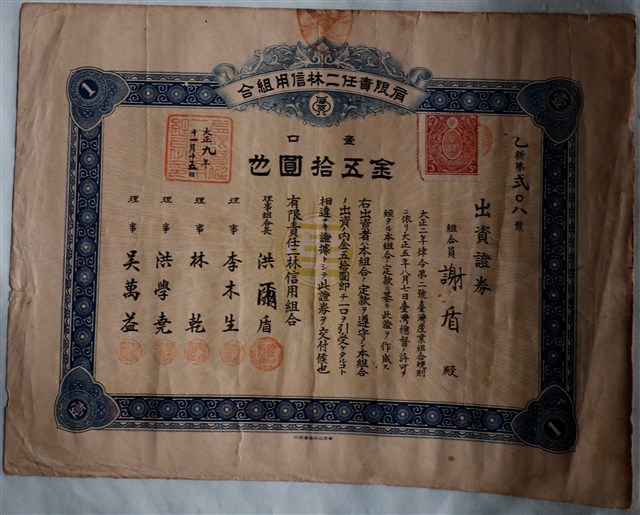 合組用信林二任責限有
壹口
金五拾圓也
乙新第貳〇八號
出資證券
組合員 謝盾 殿
大正二年律令第二號臺灣產業組合規則
ニ依リ大正五年八月七日臺灣總督ノ許可ヲ
經タル本組合ノ定款ニ基キ此證ヲ作成ス
右出資者ハ本組合ノ定款ヲ遵守シ本組合
ノ出資ノ內金五拾圓卽チ一口ヲ引受ケタルコト
相違ナキ證據トシテ此證券ヲ交付候也
有限責任二林信用組合
理事組合長 洪爾盾
理事 李木生
理事 林乾
理事 洪學堯
理事 吳萬益
大正九年
十一月十五日
1
壹
壹
1